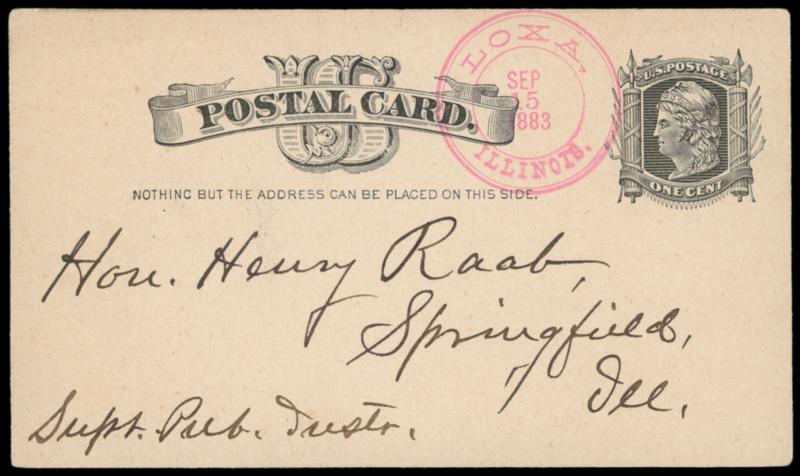 US
POSTAL CARD.
NOTHING BUT THE ADDRESS CAN BE PLACED ON THIS SIDE.
LOXA,
SEP
15
1883
ILLINOIS.
U.S. POSTAGE
ONE CENT
Hon. Henry Raab,
Springfield,
Ill.
Supt. Pub. Instr.